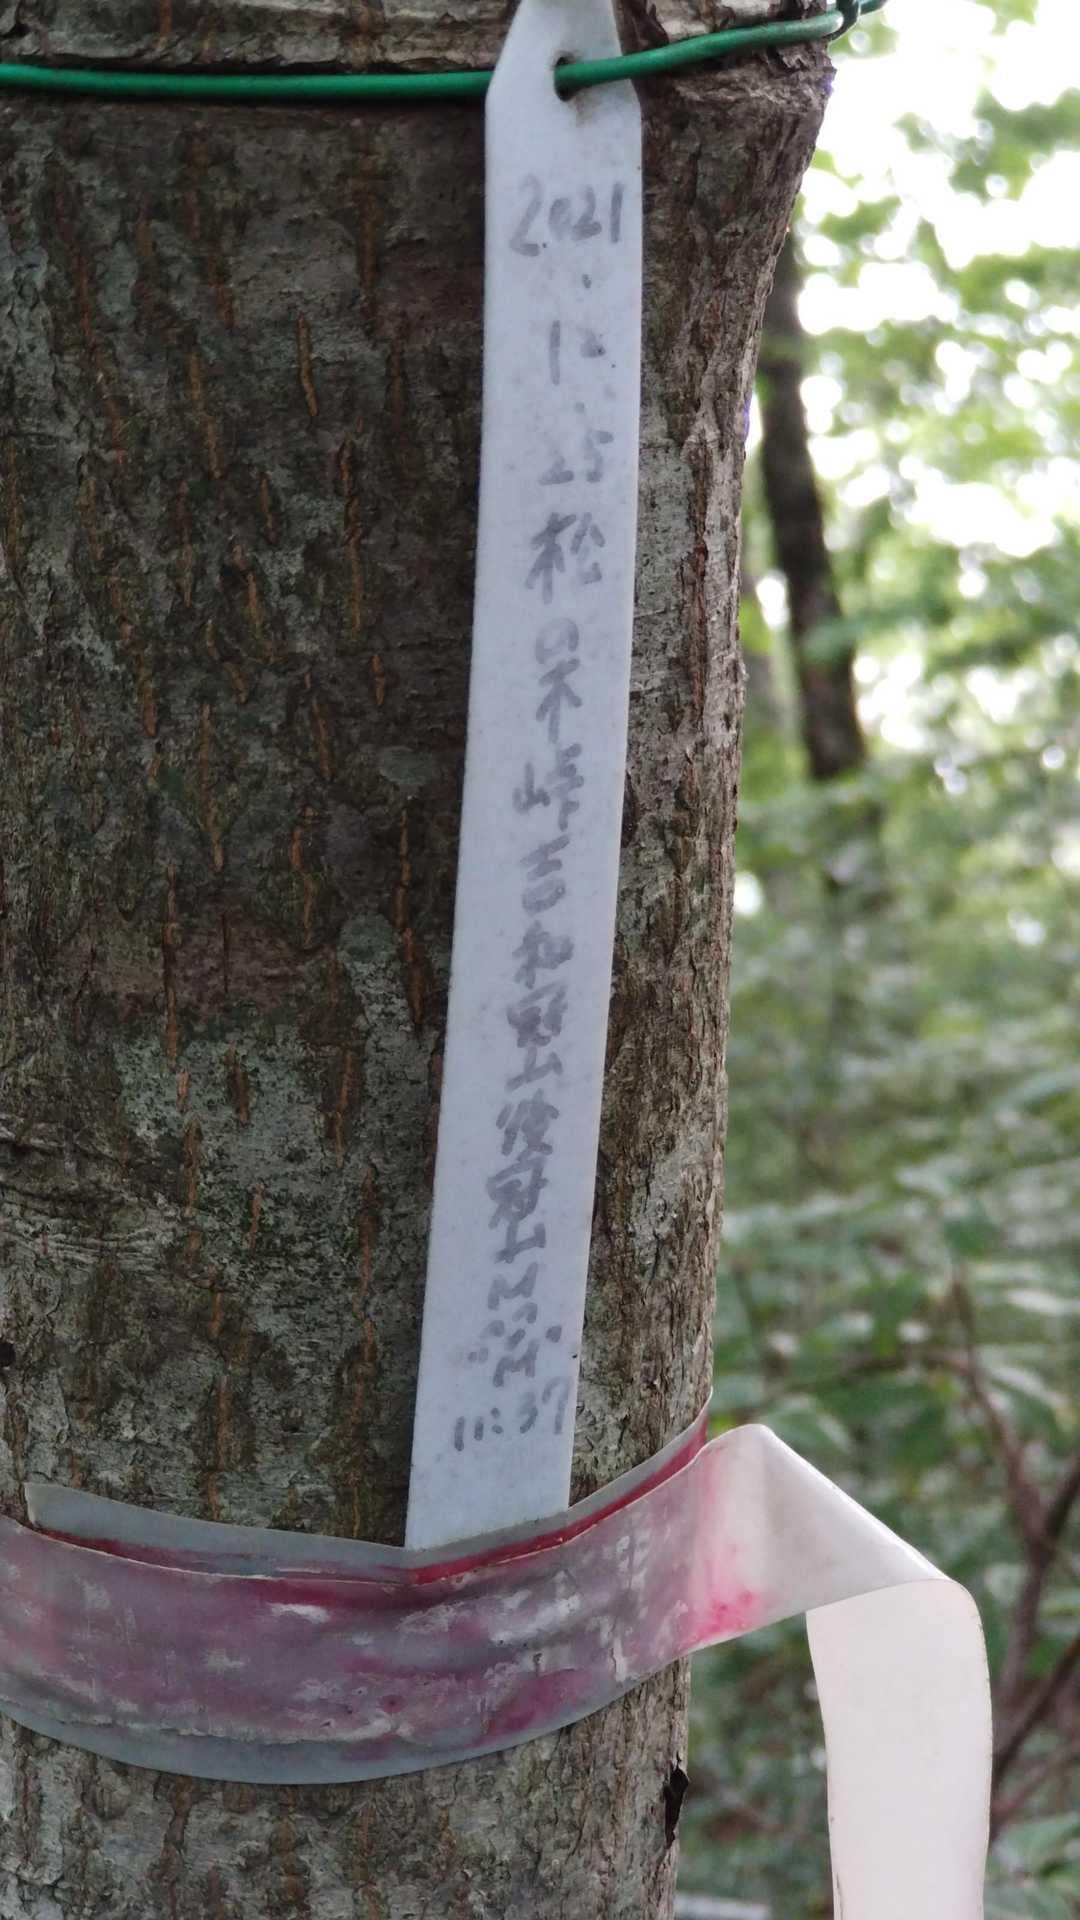 2021
.
12
.
25
松
の
木
峠
吉
和
冠
山
後
冠
山
11:37